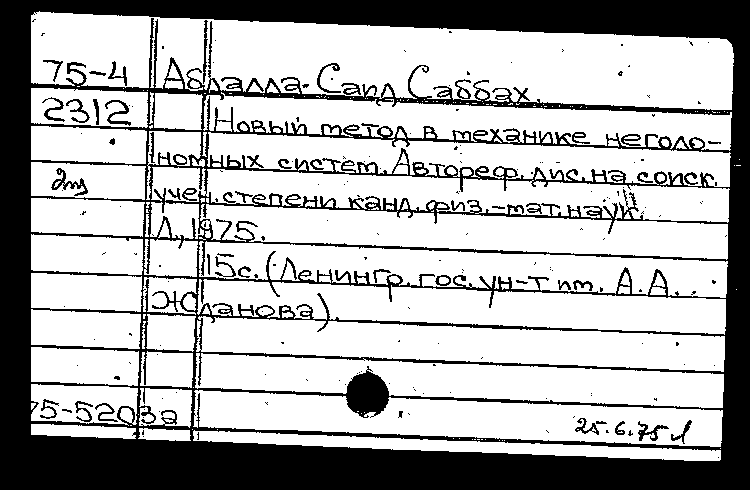 75-4 Абдалла-Саид Саббах.
2312 Новый метод в механике неголо-
номных систем. Автореф. дис. на соиск.
учен. степени канд. физ.-мат. наук.
Л., 1975.
15с. (Ленингр. гос. ун-т им. А.А.
Жданова).
75-5203а
25.6.75 л